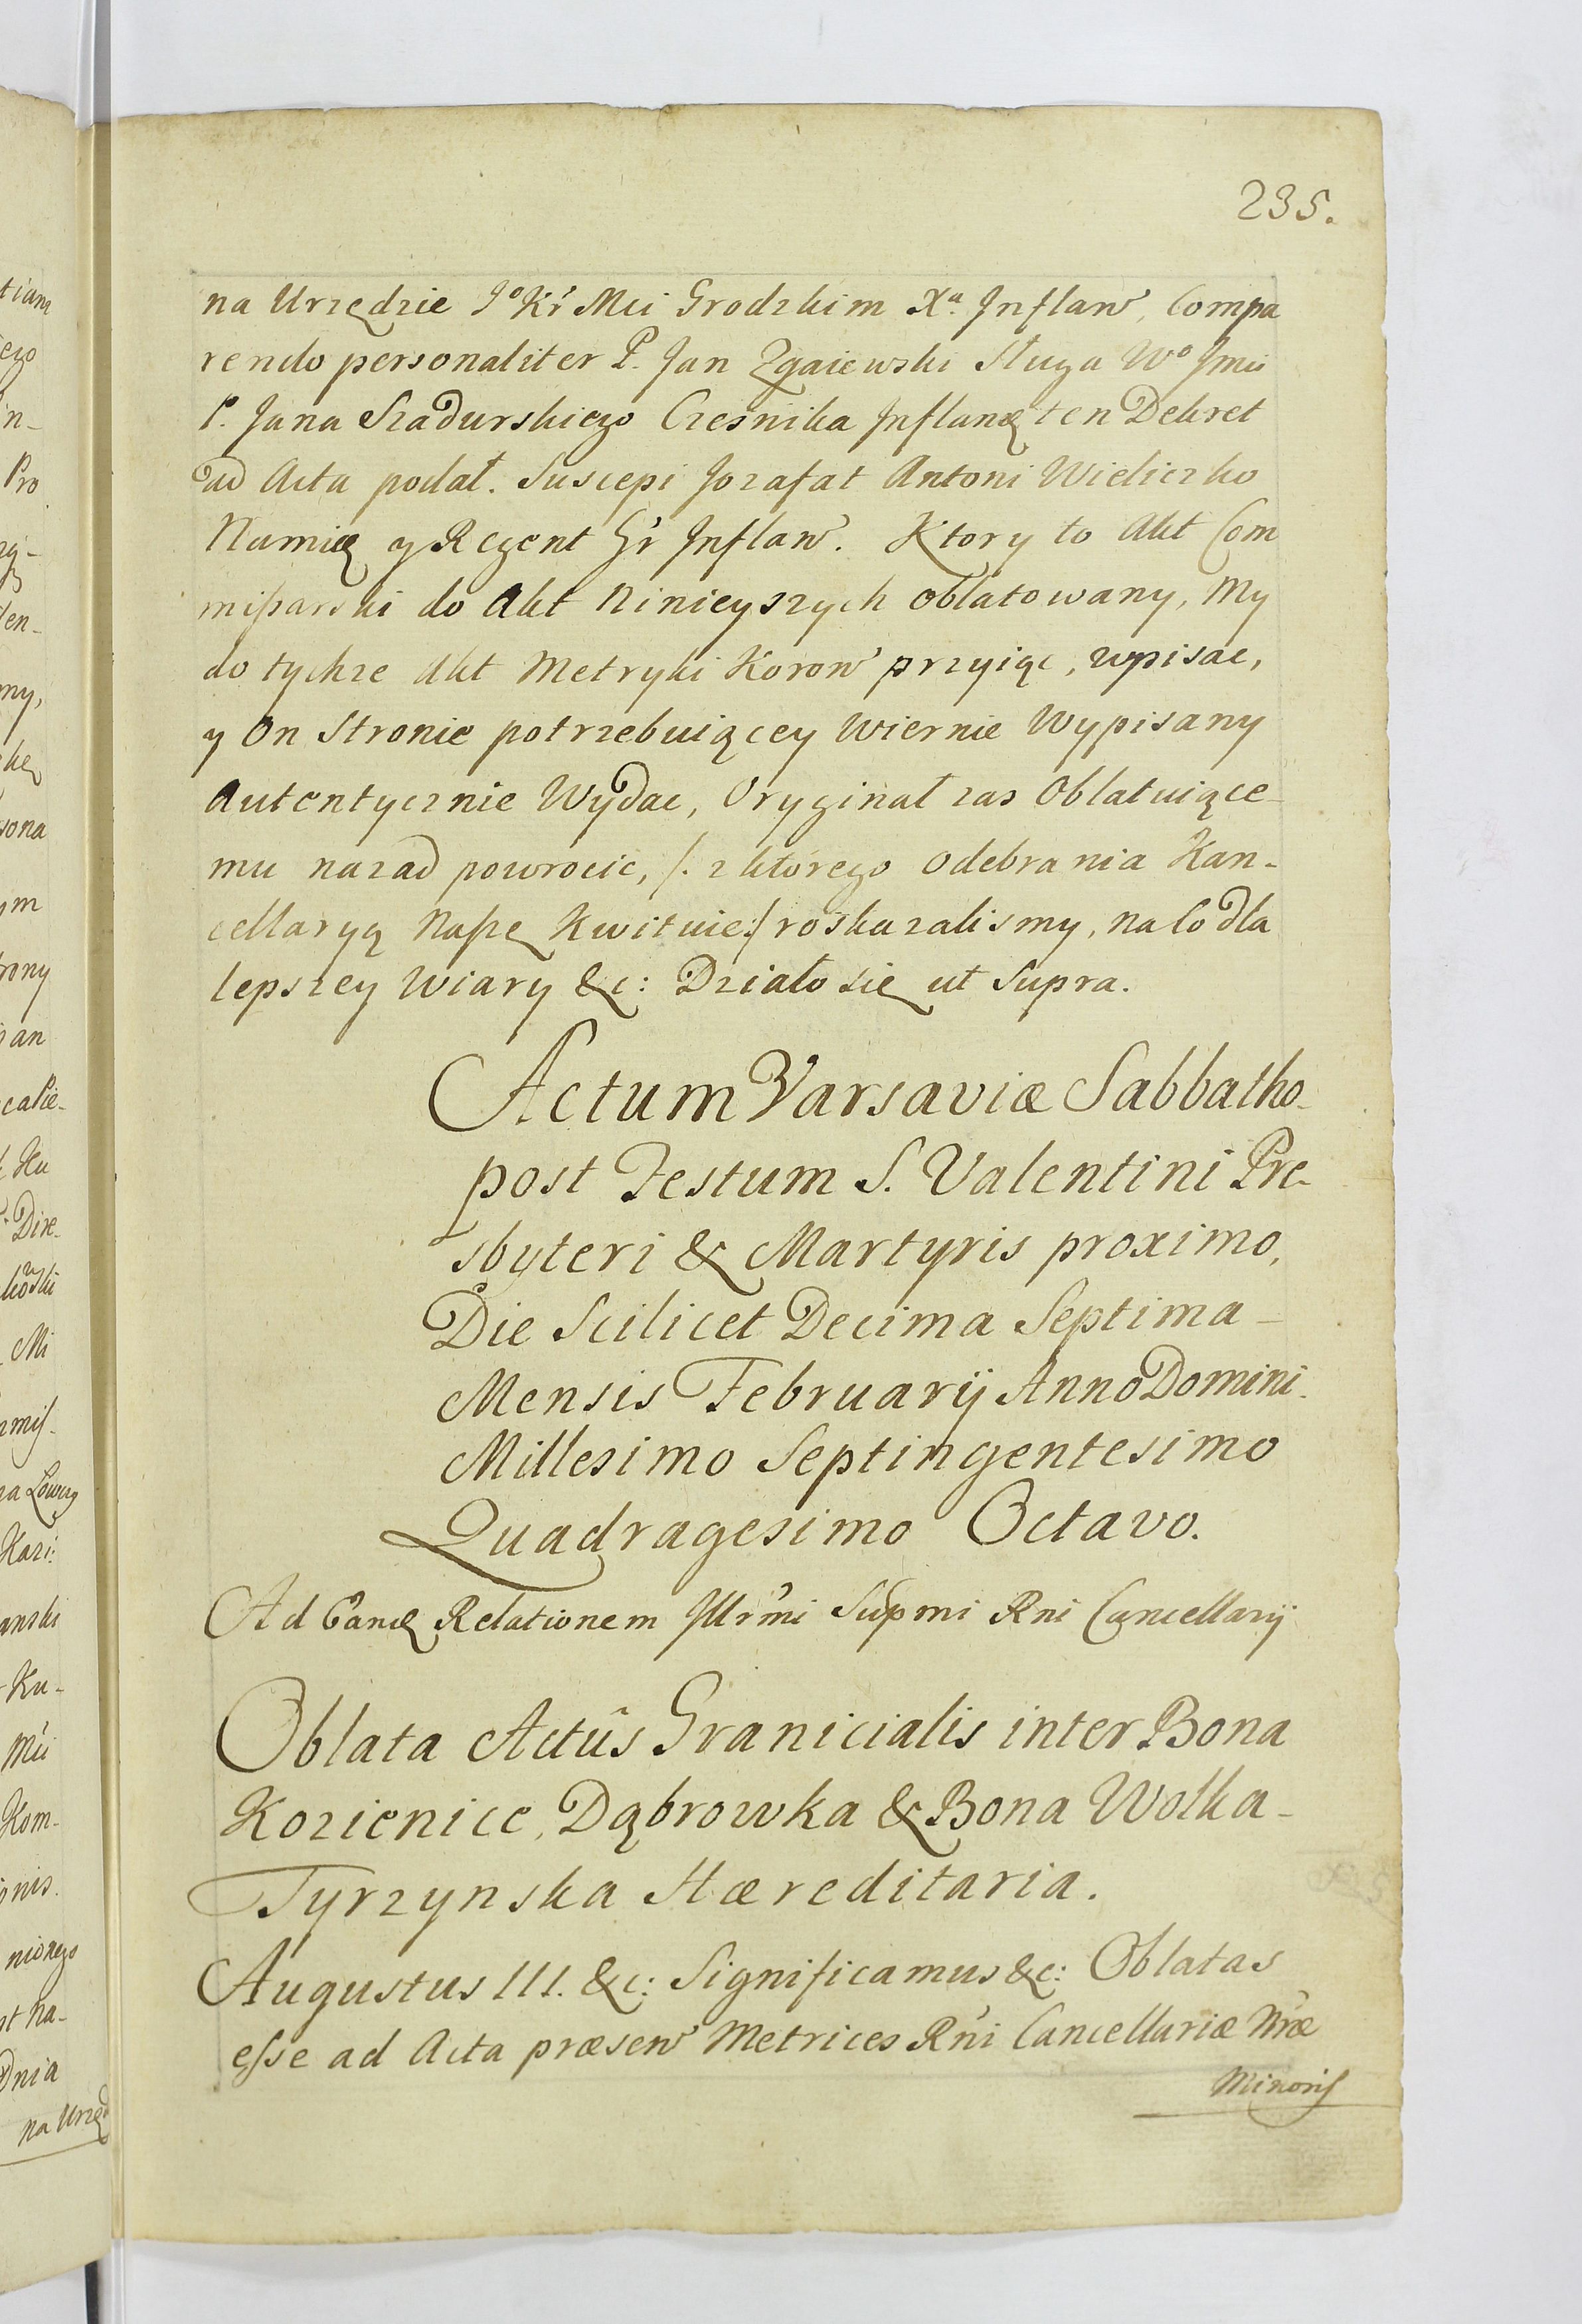 235.
na Urzędzie Jº Kr Mci Grodzkim Xª. Inflan, Compa
rendo personaliter P. Jan Zgaiewski Sługa Wº Jmci
P. Jana Szadurskiego Czesnika Inflan ten Dekret
ad Acta podał. Suscepi Jozafat Antoni Wieliczko
Namię y Regent Gr Inflan. Ktory to Akt Com
mißarski do Akt Ninieyszych oblatowany, My
do tychze Akt Metryki Koron przyiąc, wpisac,
y On Stronie potrzebuiącey Wiernie Wypisany
Autentycznie Wydac, Oryginał zas Oblatuiące-
mu nazad powrocic, /. z którego odebrania Kan-
cellaryą Naßę Kwituie :/ roskazalismy, na Co dla
lepszey Wiary &c: Działo się ut Supra.
Actum Varsaviæ Sabbatho-
post Festum S. Valentini Pre-
sbyteri & Martyris proximo,
Die Scilicet Decima Septima -
Mensis Februarij Anno Domini.
Millesimo Septingentesimo
Quadragesimo Octavo.
Ad Relationem Illrmi Supmi Rni Cancellarij
Oblata Actûs Granicialis inter Bona
Kozienice, Dąbrowka & Bona Wolka-
Tyrzynska Hæreditaria.
Augustus III. &c: Significamus &c: Oblatas
esse ad Acta præsen Metrices Rni Cancellariæ Nræ
Minoris